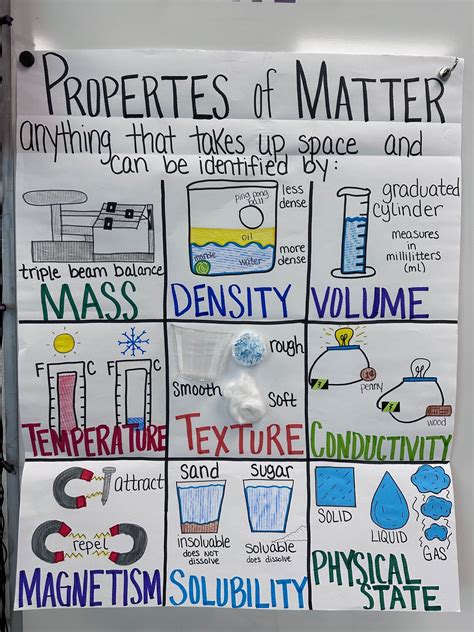 PROPERTES of MATTER
anything that takes up space and
can be identified by:
triple beam balance
MASS
ping pong
ball
oil
marble
water
less
dense
more
dense
DENSITY
graduated
cylinder
measures in
milliliters
(mL)
VOLUME
F C
F C
TEMPERATURE
rough
Smooth
Soft
TEXTURE
penny
wood
CONDUCTIVITY
attract
repel
MAGNETISM
SAND
insoluable
does not
dissolve
SUGAR
Soluable
does dissolve
SOLUBILITY
SOLID
LIQUID
GAS
PHYSICAL
STATE